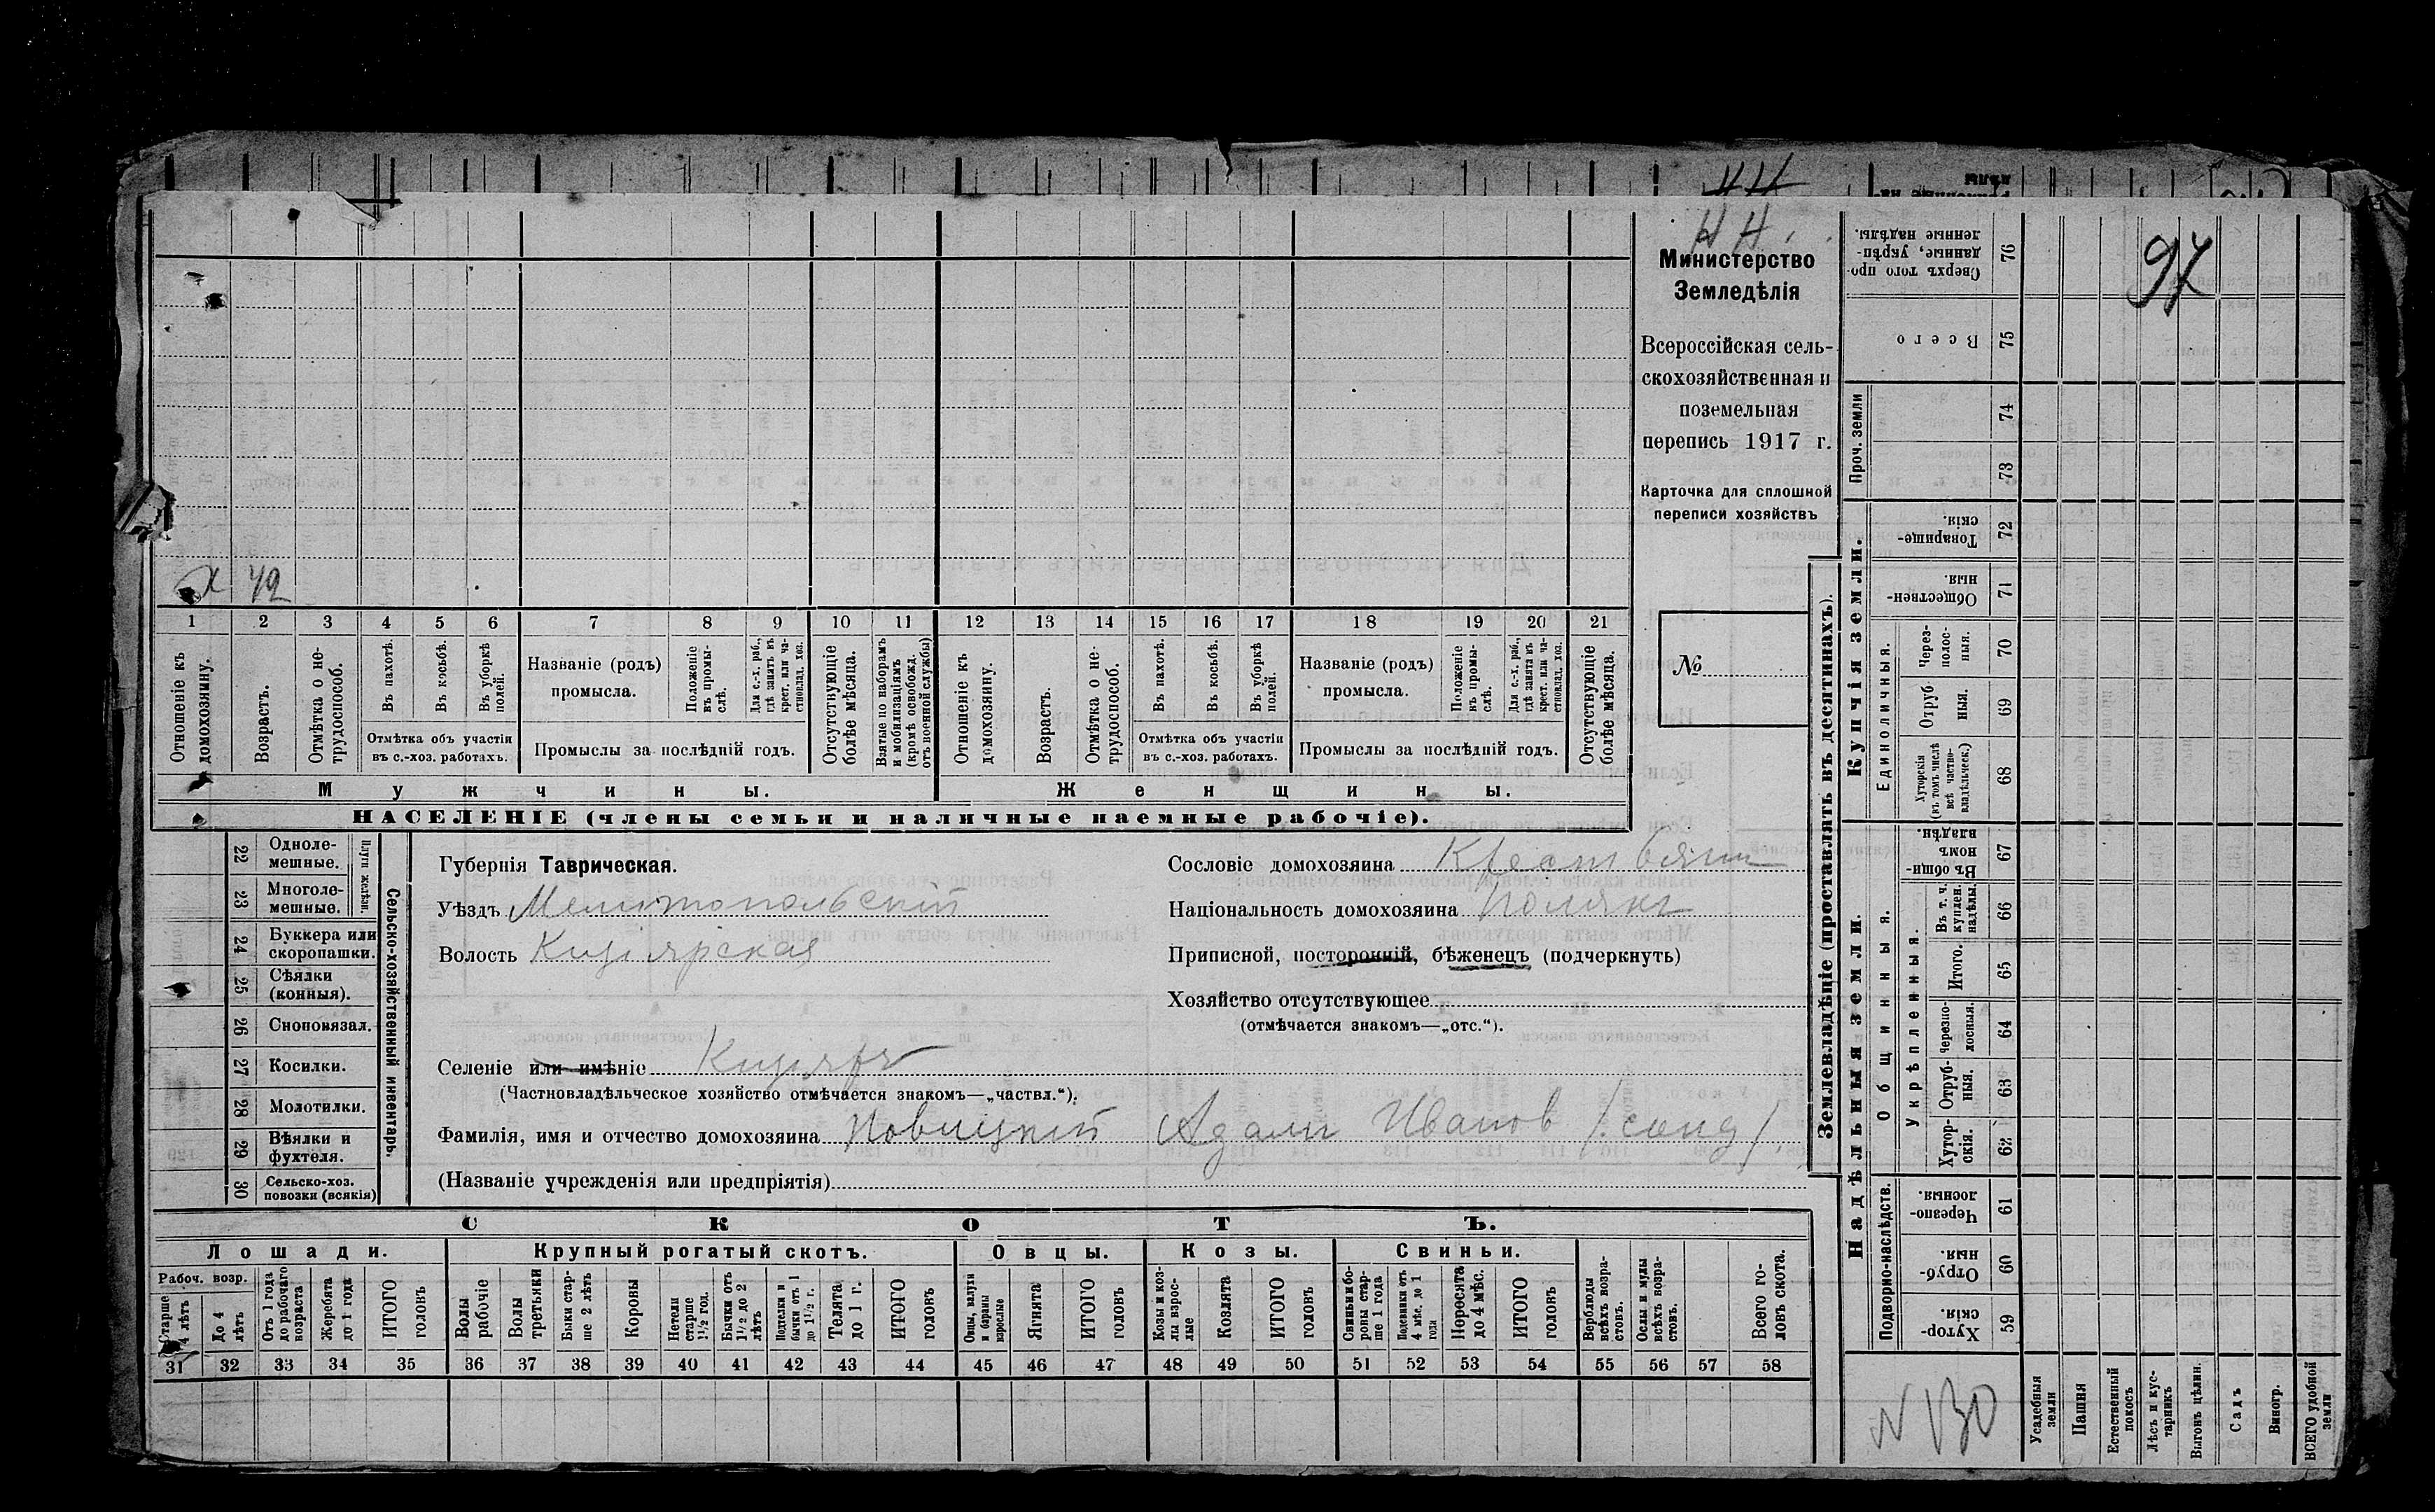 Н Н.
Министерство
Земледѣлія
Всероссійская сель-
скохозяйственная и
поземельная
перепись 1917 г.
Карточка для сплошной
переписи хозяйствъ
№
97
х 42
1 2 3 4 5 6 7 8 9 10 11 12 13 14 15 16 17 18 19 20 21
Отношеніе къ домохозяину.
Возрастъ.
Отмѣтка о не-трудоспособ.
Въ пахотѣ.
Въ косьбѣ.
Въ уборкѣ полей.
Отмѣтка объ участіи
въ с.-хоз. работахъ.
Названіе (родъ)
промысла.
Положеніе въ промы-слѣ.
Для с.-х. раб., гдѣ занятъ въ крест. или ча-стновлад. хоз.
Промыслы за послѣдній годъ.
Отсутствующіе болѣе мѣсяца.
Взятые по наборамъ и мобилизаціямъ (кромѣ освобожд. отъ военной службы)
Отношеніе къ домохозяину.
Возрастъ.
Отмѣтка о не-трудоспособ.
Въ пахотѣ.
Въ косьбѣ.
Въ уборкѣ полей.
Отмѣтка объ участіи
въ с.-хоз. работахъ.
Названіе (родъ)
промысла.
Положеніе въ промы-слѣ.
Для с.-х. раб., гдѣ занята въ крест. или ча-стновлад. хоз.
Промыслы за послѣдній годъ.
Отсутствующіе болѣе мѣсяца.
Мужчины. Женщины.
НАСЕЛЕНІЕ (члены семьи и наличные наемные рабочіе).
22 Одноле-мешные.
23 Многоле-мешные.
Плуги желѣзн.
24 Буккера или скоропашки.
25 Сѣялки (конныя).
26 Сноповязал.
27 Косилки.
28 Молотилки.
29 Вѣялки и фухтеля.
30 Сельско-хоз. повозки (всякія)
Сельско-хозяйственный инвентарь.
Губернія Таврическая.
Уѣздъ Мелитопольскій
Волость Кизіярская
Сословіе домохозяина Крестьянин
Національность домохозяина Полякъ
Приписной, посторонній, бѣженецъ (подчеркнуть)
Хозяйство отсутствующее
(отмѣчается знакомъ—„отс.“).
Селеніе или имѣніе Кизіяръ
(Частновладѣльческое хозяйство отмѣчается знакомъ—„частвл.“).
Фамилія, имя и отчество домохозяина Новицкій Адам Иванов
(Названіе учрежденія или предпріятія)
СКОТЪ.
Лошади. Крупный рогатый скотъ. Овцы. Козы. Свиньи.
Рабоч. возр.
Старше 4 лѣтъ
До 4 лѣтъ
Отъ 1 года до рабочаго возраста
Жеребята до 1 года
ИТОГО головъ
Волы рабочіе
Волы третьяки
Быки стар-ше 2 лѣтъ
Коровы
Нетели старше 1½ год.
Бычки отъ 1½ до 2 лѣтъ
Подтелки и бычки отъ 1 до 1½ г.
Телята до 1 г.
ИТОГО головъ
Овцы, валухи и бараны взрослые
Ягнята
ИТОГО головъ
Козы и коз-лы взрос-лые
Козлята
ИТОГО головъ
Свиньи и бо-ровы стар-ше 1 года
Подсвинки отъ 4 мѣс. до 1 года
Поросята до 4 мѣс.
ИТОГО головъ
Верблюды всѣхъ возра-стовъ.
Ослы и мулы всѣхъ возра-стовъ.
Всего го-ловъ скота.
31 32 33 34 35 36 37 38 39 40 41 42 43 44 45 46 47 48 49 50 51 52 53 54 55 56 57 58
Землевладѣніе (проставлять въ десятинахъ).
Сверхъ того про-данные, укрѣп-ленные надѣлы. 76
Всего 75
Проч. земли
74
73
Купчія земли.
Товарище-скія. 72
Обществен-ныя. 71
Единоличныя.
Через-полос-ныя. 70
Отруб-ныя. 69
Хуторскія (въ томъ числѣ всѣ частно-владѣльческ.) 68
Надѣльныя земли.
Общинныя.
Въ общи-номъ владѣн. 67
Укрѣпленныя.
Въ т. ч. куплен. надѣлы. 66
Итого. 65
Черезпо-лосныя. 64
Отруб-ныя. 63
Хутор-скія. 62
Подворно-наслѣдств.
Черезпо-лосныя. 61
Отруб-ныя. 60
Хутор-скія. 59
N 130
Усадебныя земли
Пашня
Естественный покосъ
Лѣсъ и кус-тарникъ
Выгонъ цѣлин.
Садъ
Виногр.
ВСЕГО удобной земли